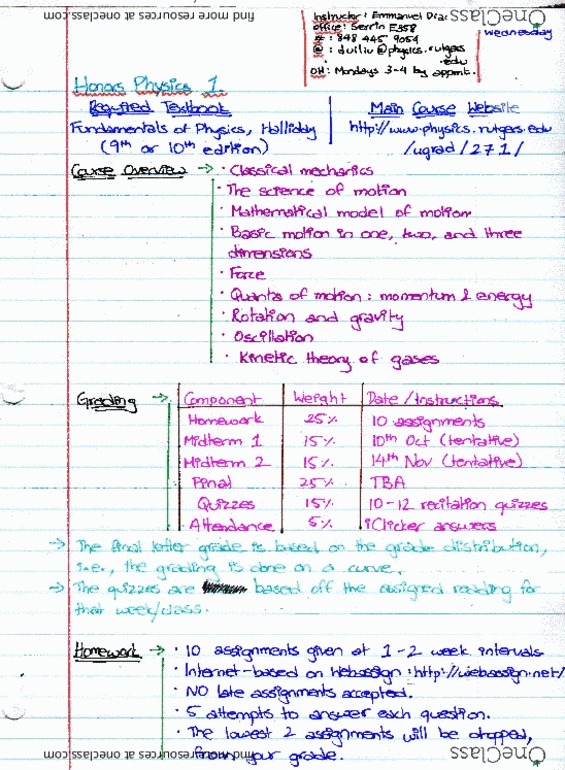 find more resources at oneclass.com
OneClass
Instructor: Emmanuel Diaz
office: Serrin E358
#: 848 445 9054
@: duiliu@physics.rutgers
.edu
OH: Mondays 3-4 by appmt.
Wednesday
Honors Physics 1.
Required Textbook
Fundamentals of Physics, Halliday
(9th or 10th edition)
Main Course Website
http://www.physics.rutgers.edu
/ugrad/271/
Course Overview → • Classical mechanics
• The science of motion
• Mathematical model of motion
• Basic motion in one, two, and three
dimensions
• Force
• Quants of motion: momentum & energy
• Rotation and gravity
• Oscillation
• Kinetic theory of gases
Grading → Component Weight Date/Instructions
Homework 25% 10 assignments
Midterm 1 15% 10th Oct (tentative)
Midterm 2 15% 14th Nov (tentative)
Final 25% TBA
Quizzes 15% 10-12 recitation quizzes
Attendance 5% iClicker answers
→ The final letter grade is based on the grade distribution,
i.e., the grading is done on a curve.
→ The quizzes are based off the assigned reading for
that week/class.
Homework → • 10 assignments given at 1-2 week intervals
• Internet-based on Webassign: http://webassign.net/
• NO late assignments accepted.
• 5 attempts to answer each question.
• The lowest 2 assignments will be dropped,
from your grade.
find more resources at oneclass.com
OneClass